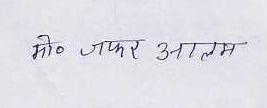 मो० जफर आलम